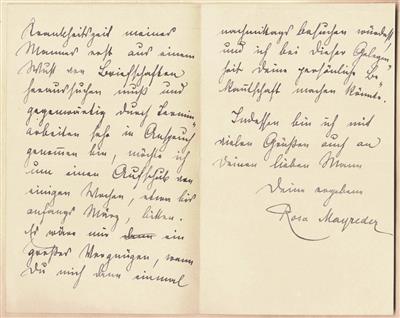 Krankheitszeit meines
Mannes erst aus einem
Wust von Briefschaften
heraussuchen muß und
gegenwärtig durch Termin-
arbeiten sehr in Anspruch
genommen bin, möchte ich
um einen Aufschub von
einigen Wochen, etwa bis
anfangs März, bitten.
Es wäre mir denn ein
großes Vergnügen, wenn
Du mich dann einmal
nachmittags besuchen würdest,
und ich bei dieser Gelegen-
heit Deine persönliche Be-
kanntschaft machen könnte.
Indessen bin ich mit
vielen Grüßen auch an
Deinen lieben Mann
Deine ergebene
Rosa Mayreder